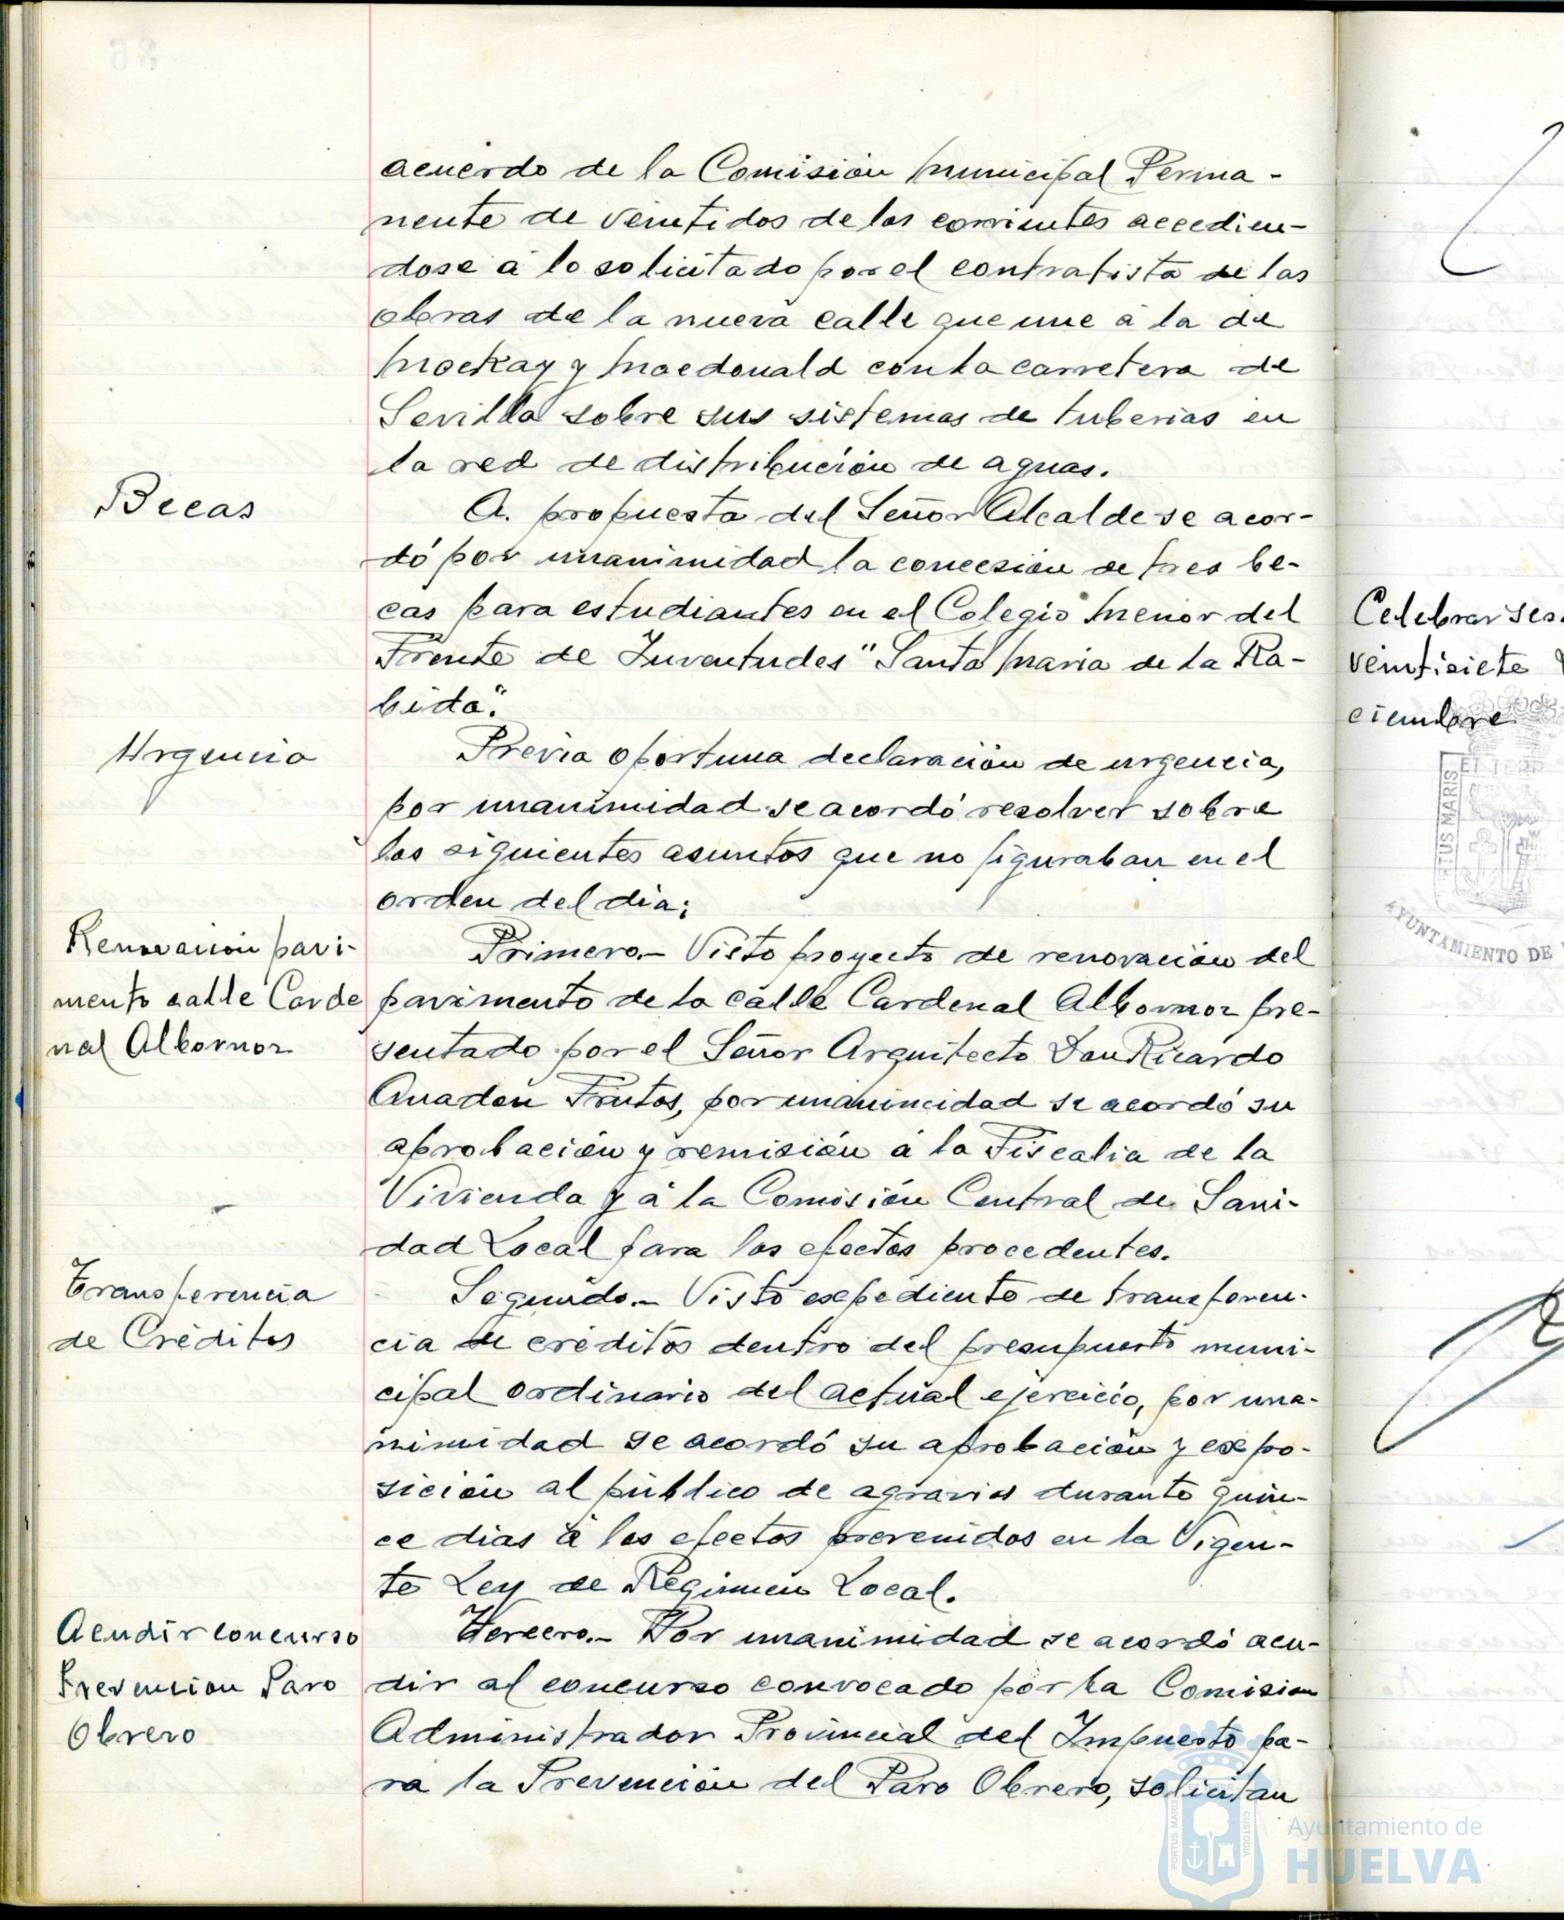 acuerdo de la Comisión Municipal Perma-
nente de veintidos de los corrientes accedien-
dose a lo solicitado por el contratista de las
obras de la nueva calle que une a la de
Mackay y Macdonald con la carretera de
Sevilla sobre sus sistemas de tuberias en
la red de distribución de aguas.
Becas
A. propuesta del Señor Alcalde se acor-
dó por unanimidad la concesión de tres be-
cas para estudiantes en el Colegio Menor del
Frente de Juventudes "Santa Maria de la Ra-
bida".
Urgencia
Previa oportuna declaración de urgencia,
por unanimidad se acordó resolver sobre
los siguientes asuntos que no figuraban en el
orden del dia;
Renovación pavi-
mento calle Carde
nal Albornoz
Primero.- Visto proyecto de renovación del
pavimento de la calle Cardenal Albornoz pre-
sentado por el Señor Arquitecto Don Ricardo
Anadón Frutos, por unanimidad se acordó su
aprobación y remisión a la Fiscalia de la
Vivienda y a la Comisión Central de Sani-
dad Local para los efectos procedentes.
Transferencia
de Créditos
Segundo.- Visto expediente de transferen-
cia de créditos dentro del presupuesto muni-
cipal ordinario del actual ejercicio, por una-
nimidad se acordó su aprobación y expo-
sición al público de agravios durante quin-
ce dias a los efectos prevenidos en la Vigen-
te Ley de Regimen Local.
Acudir concurso
Prevencion Paro
Obrero
Tercero.- Por unanimidad se acordó acu-
dir al concurso convocado por la Comision
Administrador Provincial del Impuesto pa-
ra la Prevención del Paro Obrero, solicitan
Celebrar ses
veintisiete
ciembre
PORTUS MARIS
CUSTODIA
AYUNTAMIENTO DE
Ayuntamiento de
HUELVA